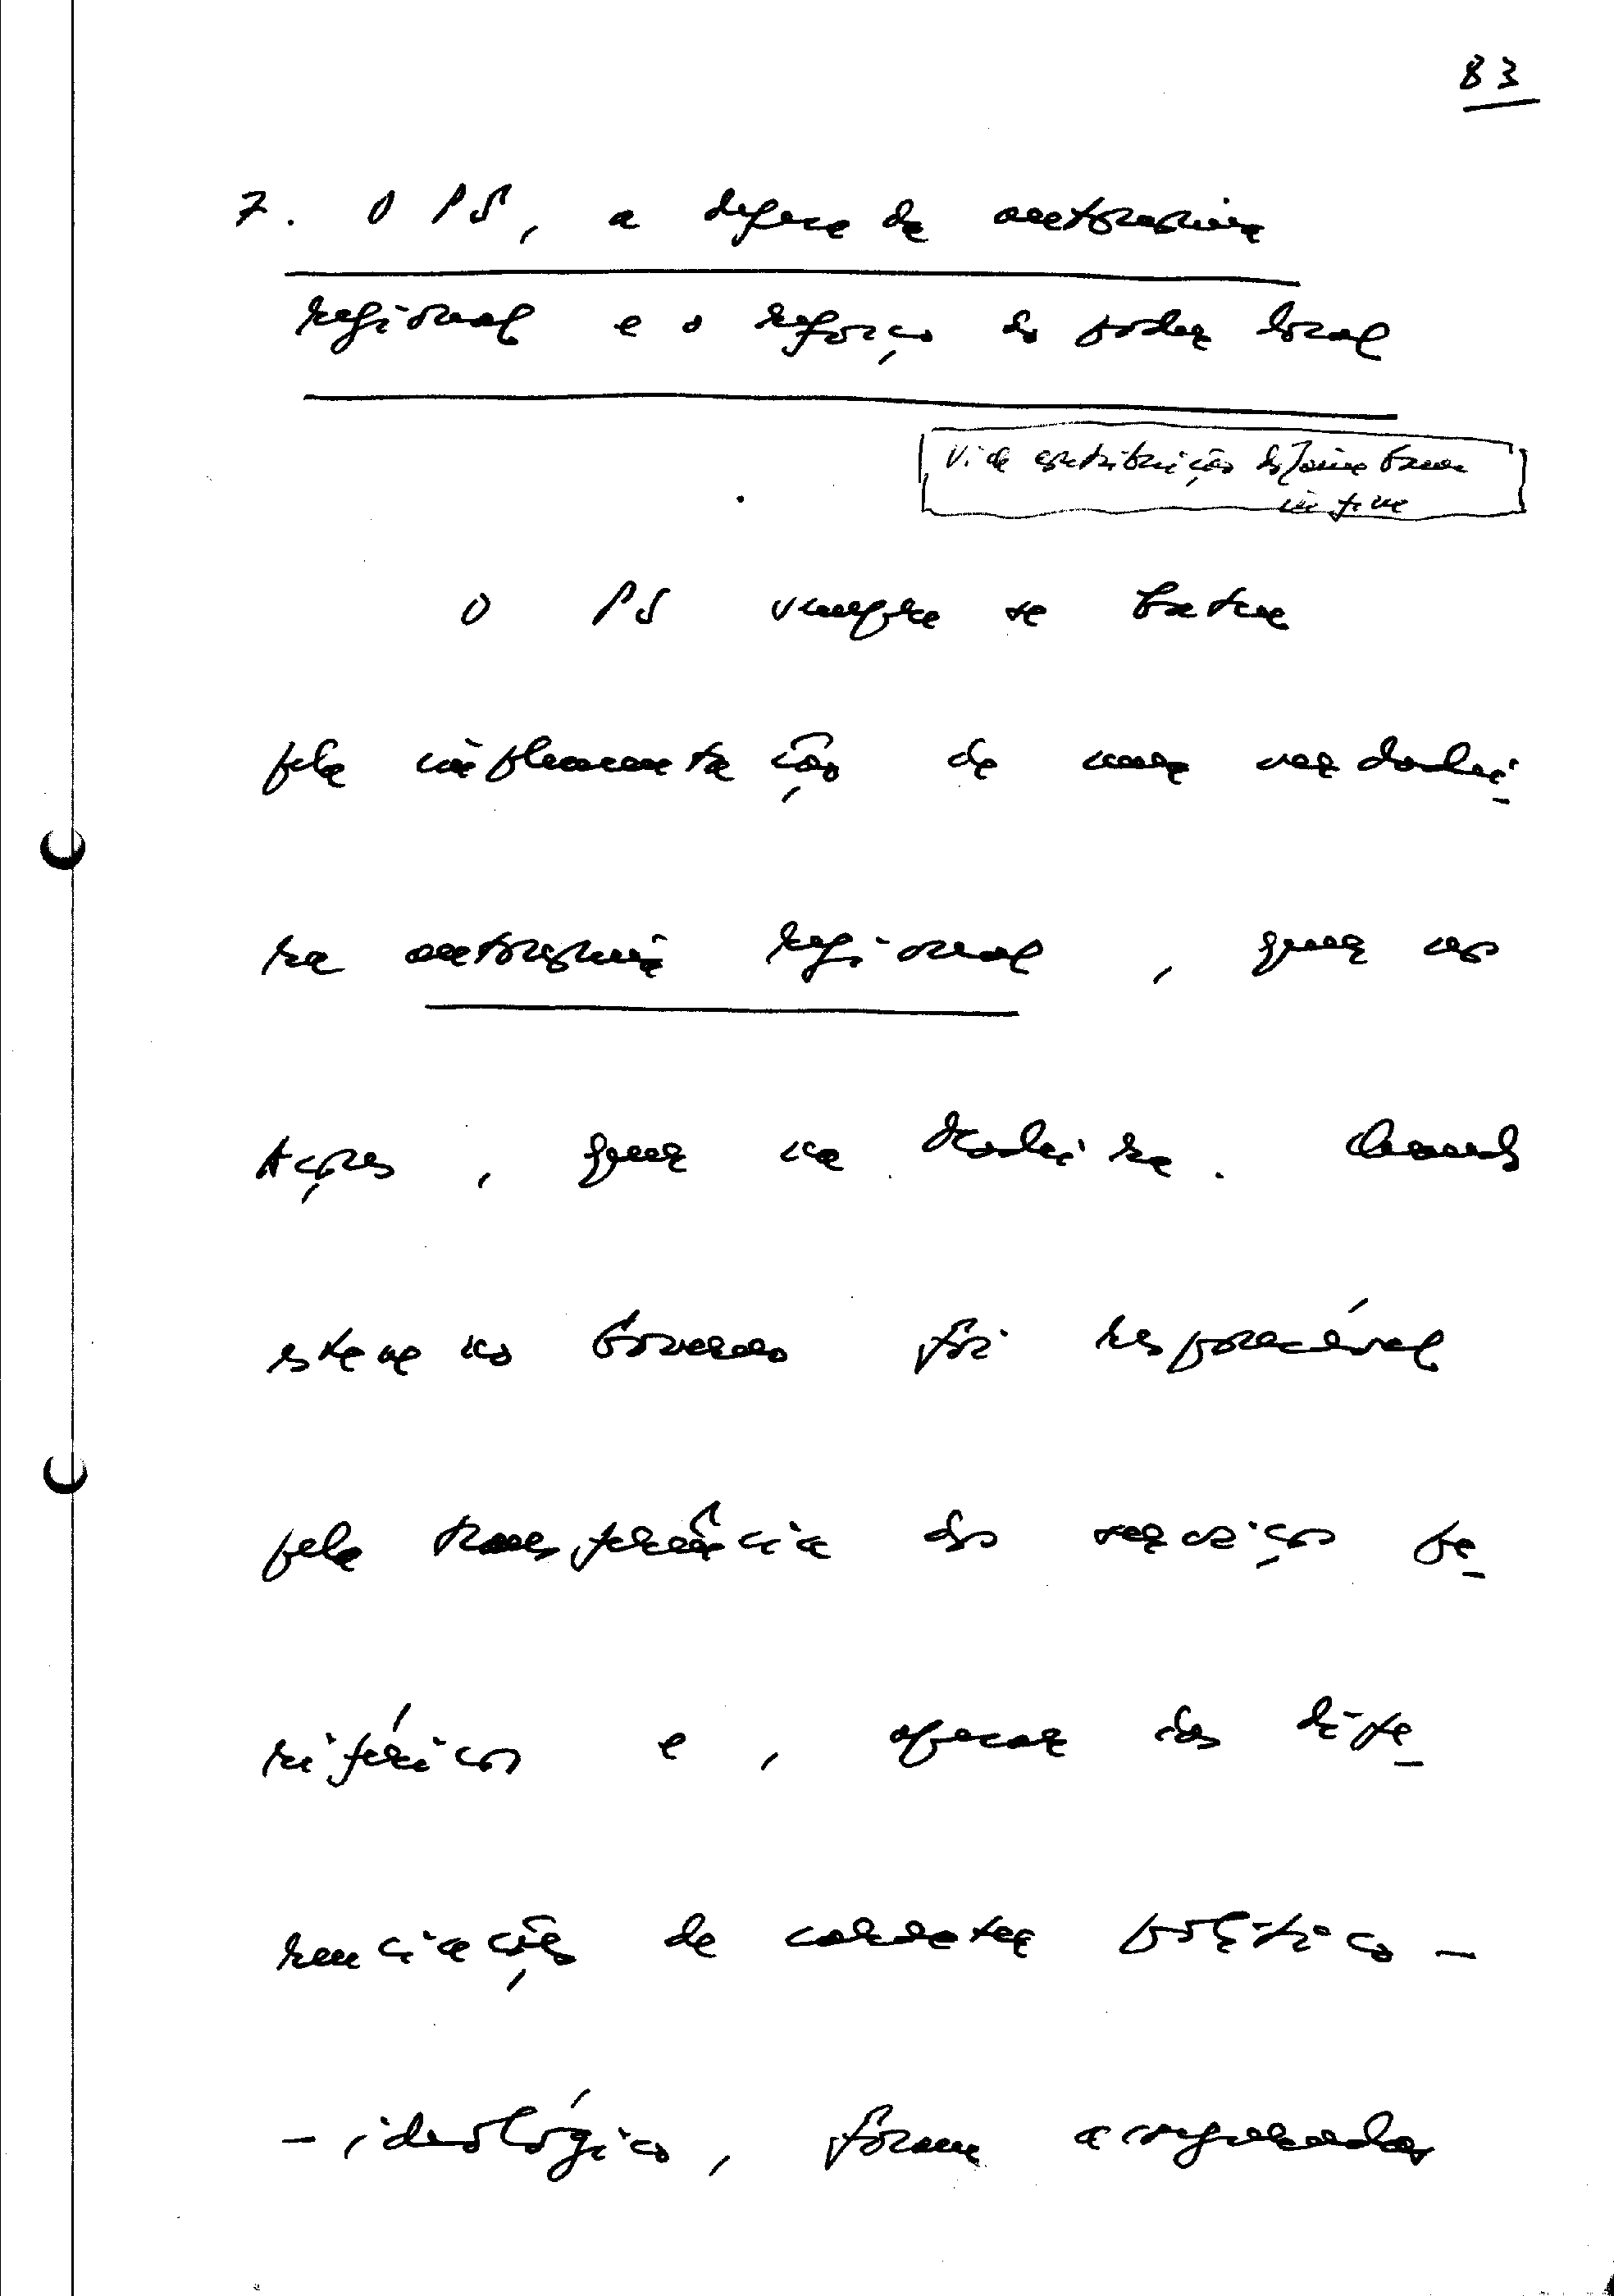 83
7. O PS, a defesa da autonomia
regional e o reforço do poder local
Vide contribuição do Jaime Gama
in fine
O PS sempre se bateu
pela implementação de uma verdadei-
ra autonomia regional, quer nos
Açores, quer na Madeira. Quando
esteve no Governo foi responsável
pela transferência dos serviços pe-
riféricos e, apesar das dife-
renciações de carácter político-
-ideológico, foram asseguradas